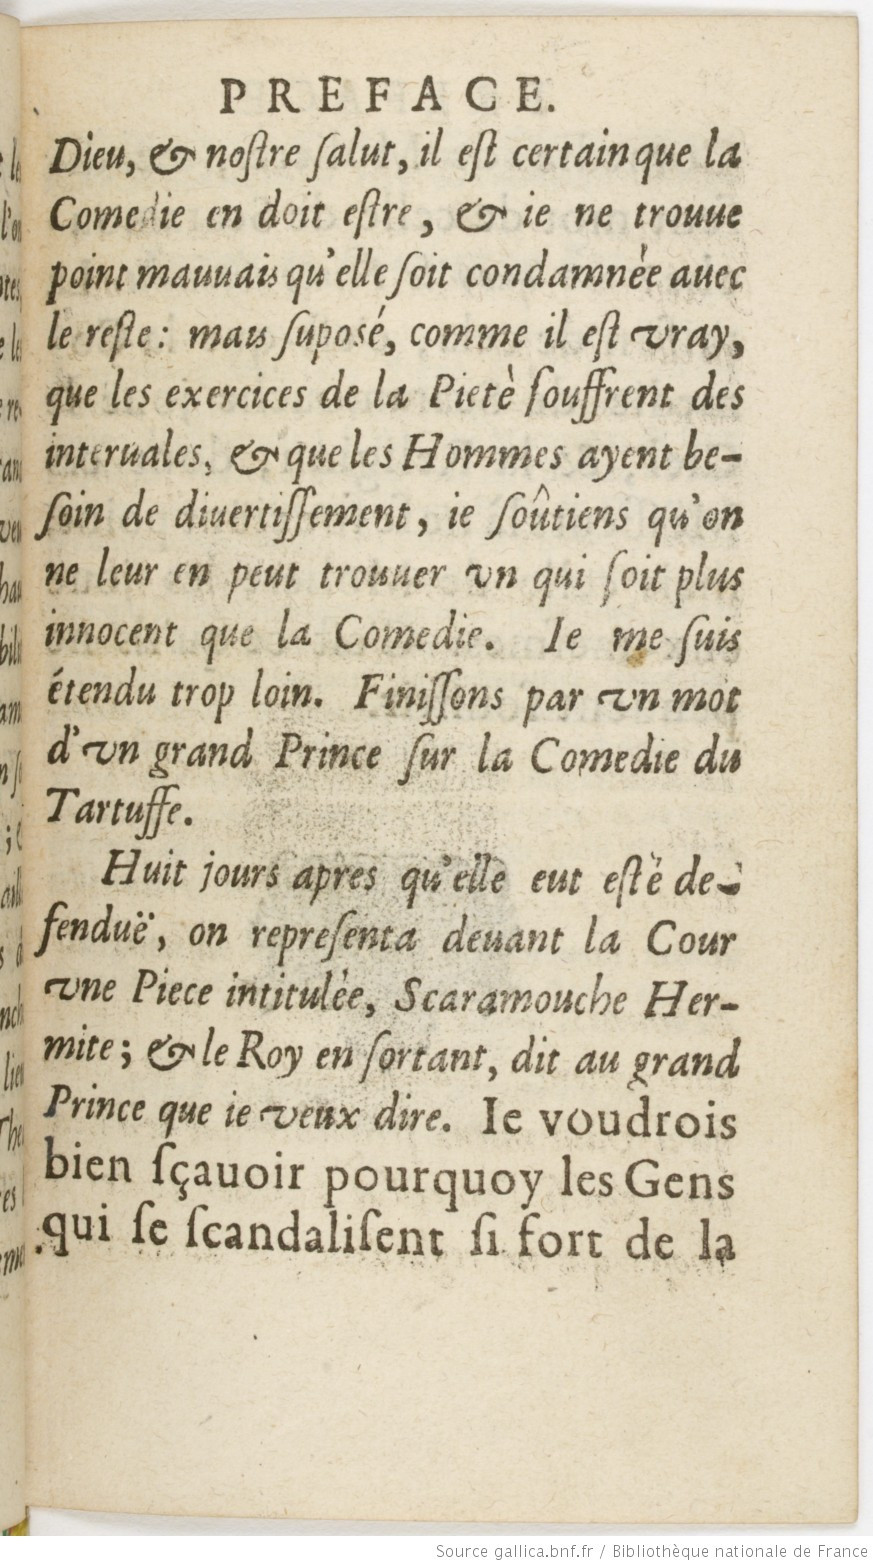 PREFACE.
Dieu, & noſtre ſalut, il eſt certain que la
Comedie en doit eſtre, & ie ne trouue
point mauuais qu'elle ſoit condamnée auec
le reſte: mais ſuposé, comme il eſt vray,
que les exercices de la Pietè ſouffrent des
interuales, & que les Hommes ayent be-
ſoin de diuertiſſement, ie ſoûtiens qu'on
ne leur en peut trouuer vn qui ſoit plus
innocent que la Comedie. Ie me ſuis
étendu trop loin. Finiſſons par vn mot
d'vn grand Prince ſur la Comedie du
Tartuffe.
Huit jours apres qu'elle eut eſtè de-
fenduë, on repreſenta deuant la Cour
vne Piece intitulèe, Scaramouche Her-
mite; & le Roy en ſortant, dit au grand
Prince que ie veux dire. Ie voudrois
bien ſçauoir pourquoy les Gens
qui ſe ſcandaliſent ſi fort de la
Source gallica.bnf.fr / Bibliothèque nationale de France